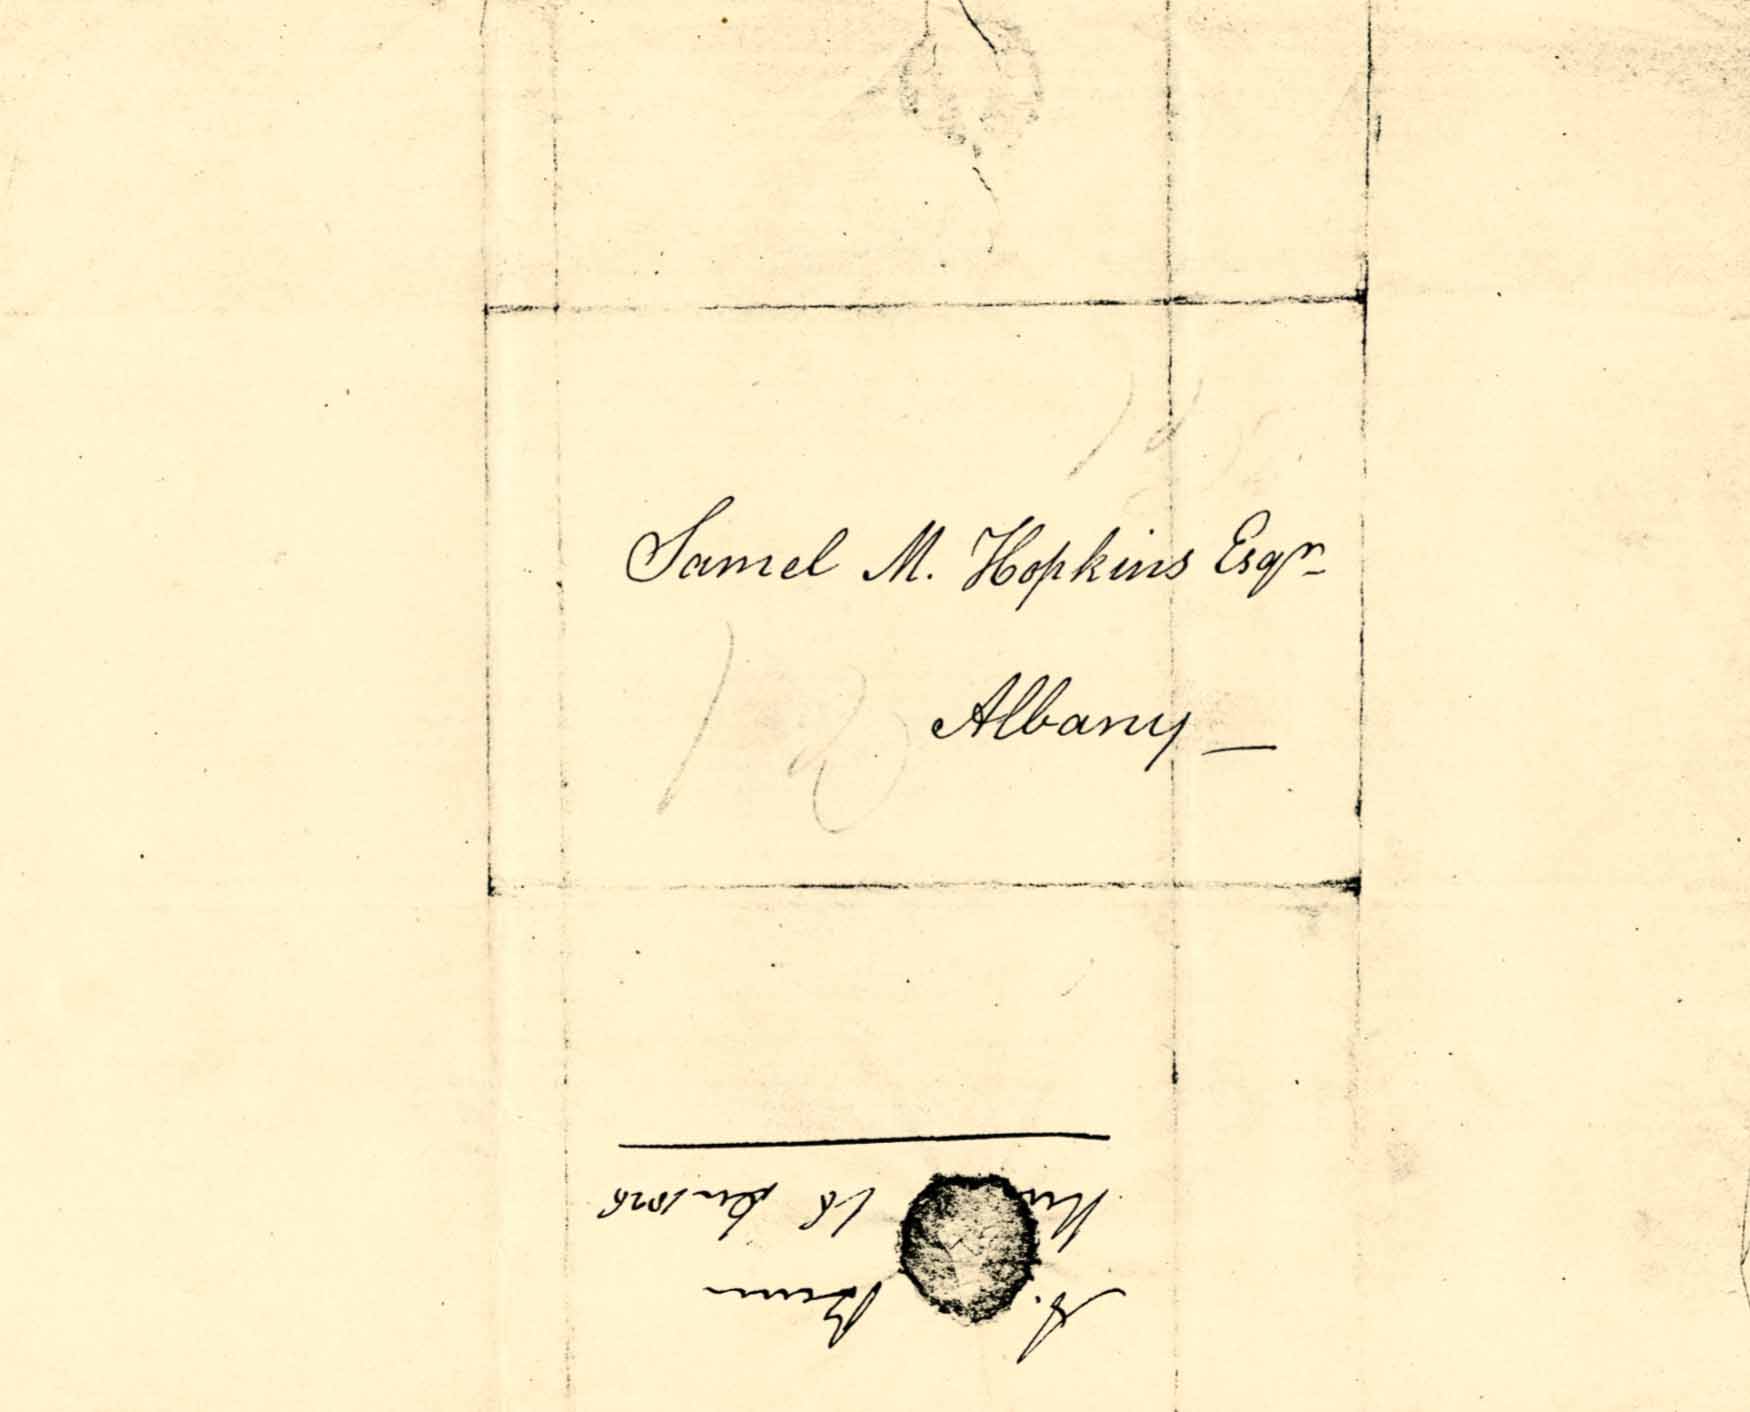 Samel M. Hopkins Esqr
Albany —
A.
18 1826